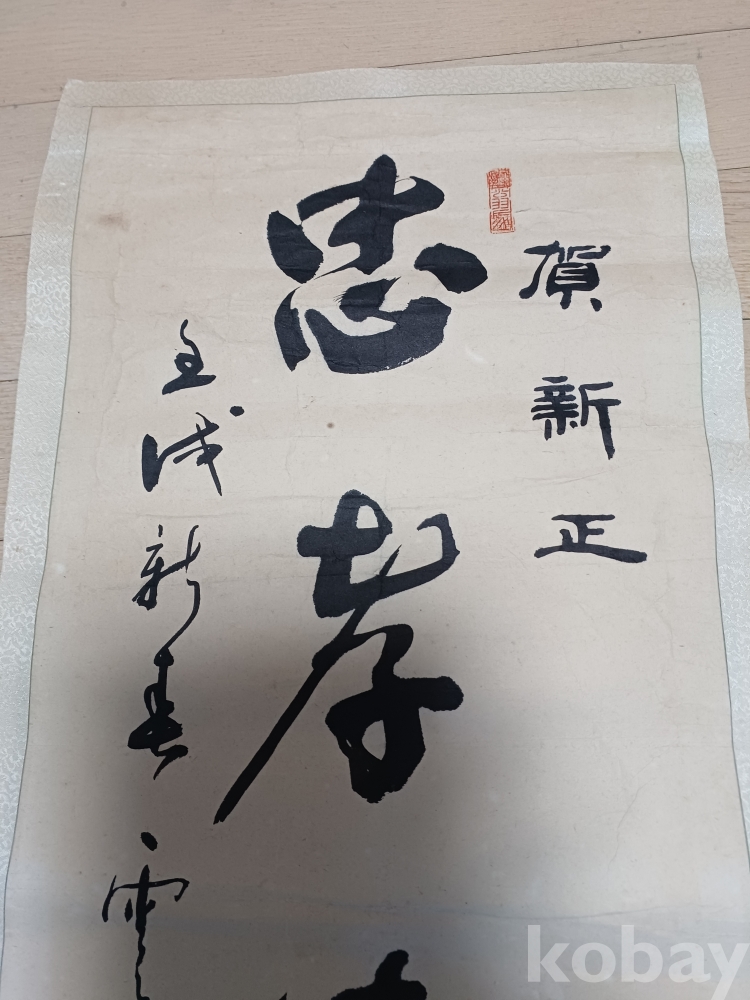 賀新正
忠孝
壬戌新春雲
kobay